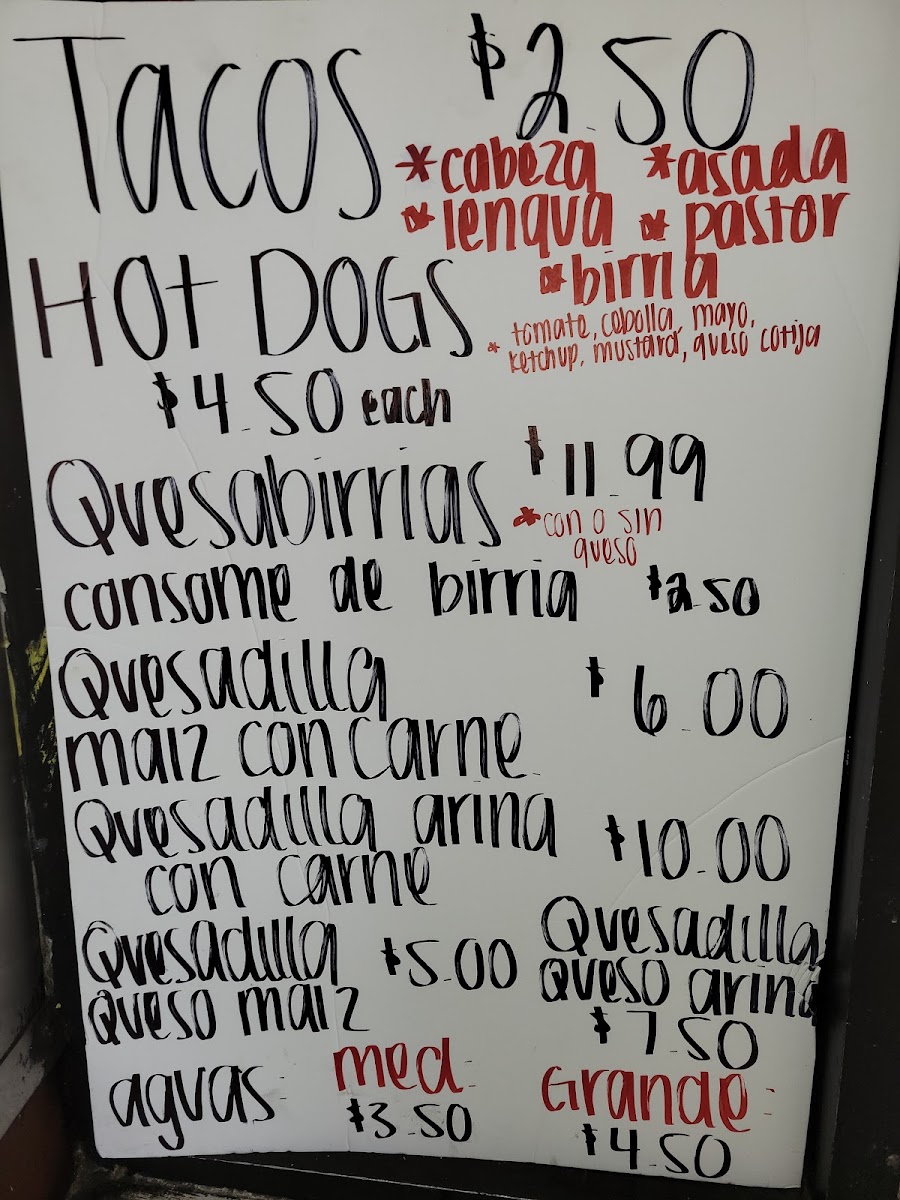 Tacos $2.50
*cabeza *asada
*lengua *pastor
*birria
HOt DOGS
* tomate, cebolla, mayo,
ketchup, mustard, queso cotija
$4.50 each
Quesabirrias $11.99
*con o sin
queso
consome de birria $2.50
Quesadilla $6.00
maiz con carne
Quesadilla arina $10.00
con carne
Quesadilla $5.00
queso maiz
Quesadilla
queso arina
$7.50
aguas: med: Grande:
$3.50 $4.50